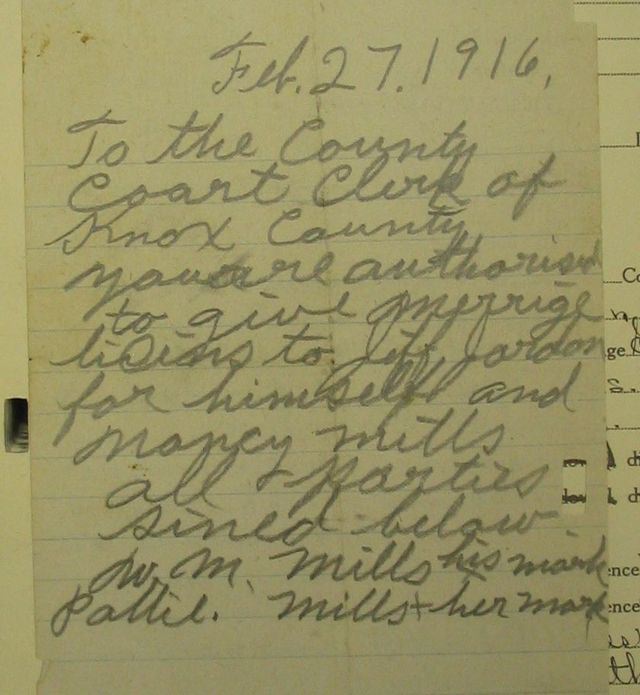 Feb. 27. 1916.
To the County
Coart Clerk of
Knox County
you are authorised
to give merrige
lisins to Jeff Jordon
for himself and
Nancy Mills
all parties
sined below
W. M. Mills his mark
Pattie. Mills + her mark